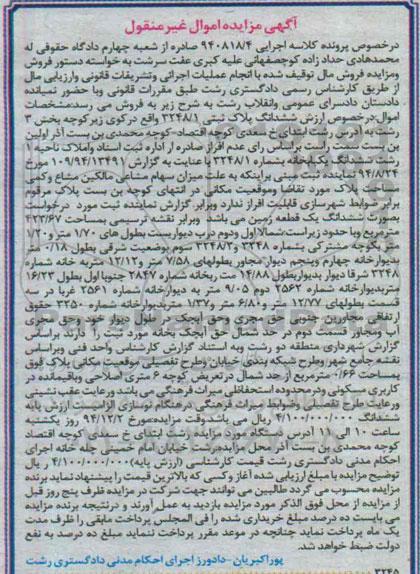 آگهی مزایده اموال غیر منقول
درخصوص پرونده کلاسه اجرایی ۹۴۰۸۱۸/۴ صادره از شعبه چهارم دادگاه حقوقی له
محمدهادی حداد زاده کوچصفهانی علیه کبری عفت سرشت به خواسته دستور فروش
ومزایده فروش مال توقیف شده با انجام عملیات اجرائی وتشریفات قانونی وارزیابی مال
از طریق کارشناس رسمی دادگستری رشت طبق مقررات قانونی وبا حضور نمیانده
دادستان دادسرای عمومی وانقلاب رشت به شرح زیر به فروش می رسد:مشخصات
اموال:درخصوص ارزش ششدانگ پلاک ثبتی ۳۲۴۸/۱ واقع درکوی زیرکوچه بخش ۳
رشت به آدرس رشت ابتدای خ سعدی کوچه اقتصاد-کوچه محمدی بن بست آذر اولین
بن بست سمت راست براساس رای عدم افراز صادره از اداره ثبت اسناد واملاک ناحیه ۱
رشت ششدانگ یکبابخانه بشماره ۳۲۴۸/۱ با عنایت به گزارش ۱۰۹/۹۴/۱۳۴۹۱ مورخ
۹۴/۸/۲۴ نماینده ثبت مبنی براینکه به علت میزان سهام مشاعی مالکین مشاع وکمی
مساحت پلاک مورد تقاضا وموقعیت مکانی در انتهای کوچه بن بست پلاک مرقوم
برابر ضوابط شهرسازی قابلیت افراز ندارد وبرابر گزارش نماینده ثبت مورد درخواست
بصورت ششدانگ یک قطعه زمین می باشد وبرابر نقشه ترسیمی بمساحت ۴۲۳/۶۷
مترمربع وبا حدود زیراست:شمالا اول ودوم درب دیواریست بطول های ۱/۷۰ متر و۱/۲۰
متر بکوچه مشترکی بشماره ۳۲۴۸ و۳۲۴۸/۲ سوم بوضعیت شرقی بطول ۰/۱۸ متر
بدیوارخانه چهارم وپنجم دیوار مجاور بطولهای ۷/۵۸ متر و۱۲/۱۲ متربه خانه شماره
۳۲۴۸ شرقا دیوار بدیواربطول ۱۴/۸۸ مت ربخانه شماره ۲۸۴۷ جنوبا اول بطول ۱۶/۲۳
متربدیوارخانه شماره ۲۵۶۲ دوم ۹/۰۵ متر به دیوارخانه شماره ۲۵۶۱ غربا در سه
قسمت بطولهای ۱۲/۷۷ متر و۶/۸۰ متر و۱/۳۷ متربدیوارخانه شماره ۳۲۵۰ حقوق
ارتفاقی مجاورین جنوبی حق مجری وحق آبچک در طول دیوار خود وحق مجری
آب ومجاور قسمت دوم در حد شمالی حق آبچک بخانه مورد ثبت را دارند براساس
گزارش شهرداری منطقه دو رشت وبه استناد گزارش کارشناس واحد فنی وبراساس
نقشه جامع شهر وطرح شبکه بندی خیابان وطرح تفصیلی موقعیت مکانی پلاک فوق
بمساحت ۰/۶۶ مترمربع از حد شمال در تعریض کوچه ۶ متری اصلاحی وباقیمانده در
کاربری مسکونی ودرمحدوده استحفاظی میراث فرهنگی می باشد ورعایت عقب نشینی
ورعایت طرح تفصیلی وضوابط میراث فرهنگی درهنگام نوسازی الزامیست ارزش پایه
ششدانگ ۴/۱۰۰/۰۰۰/۰۰۰ ریال می باشد.وقت مزایده:مورخ ۹۴/۱۲/۲ روز یکشنبه
ساعت ۱۰ الی ۱۱ آدرس ملک مورد مزایده رشت ابتدای خ سعدی کوچه اقتصاد
کوچه محمدی بن بست آذر محل مزایده:رشت خیابان امام خمینی چله خانه اجرای
احکام مدنی دادگستری رشت قیمت کارشناسی (ارزش پایه)۴/۱۰۰/۰۰۰/۰۰۰ ریال
توضیح مزایده با مبلغ ارزیابی شده آغاز وکسی که بالاترین قیمت را پیشنهاد نماید برنده
مزایده محسوب می گردد طالبین می توانند جهت شرکت در مزایده ظرف پنج روز قبل
از مزایده از محل فوق الذکر مورد مزایده بازدید به عمل آورند و درنتیجه برنده مزایده
می بایست ده درصد مبلغ خریداری شده را فی المجلس پرداخت مابقی را ظرف مدت
یک ماه پرداخت نماید چنانچه در موعد مقرر پرداخت ننماید مبلغ ده درصد به نفع
دولت ضبط خواهد شد.
پوراکبریان-دادورز اجرای احکام مدنی دادگستری رشت
۳۲۴۵